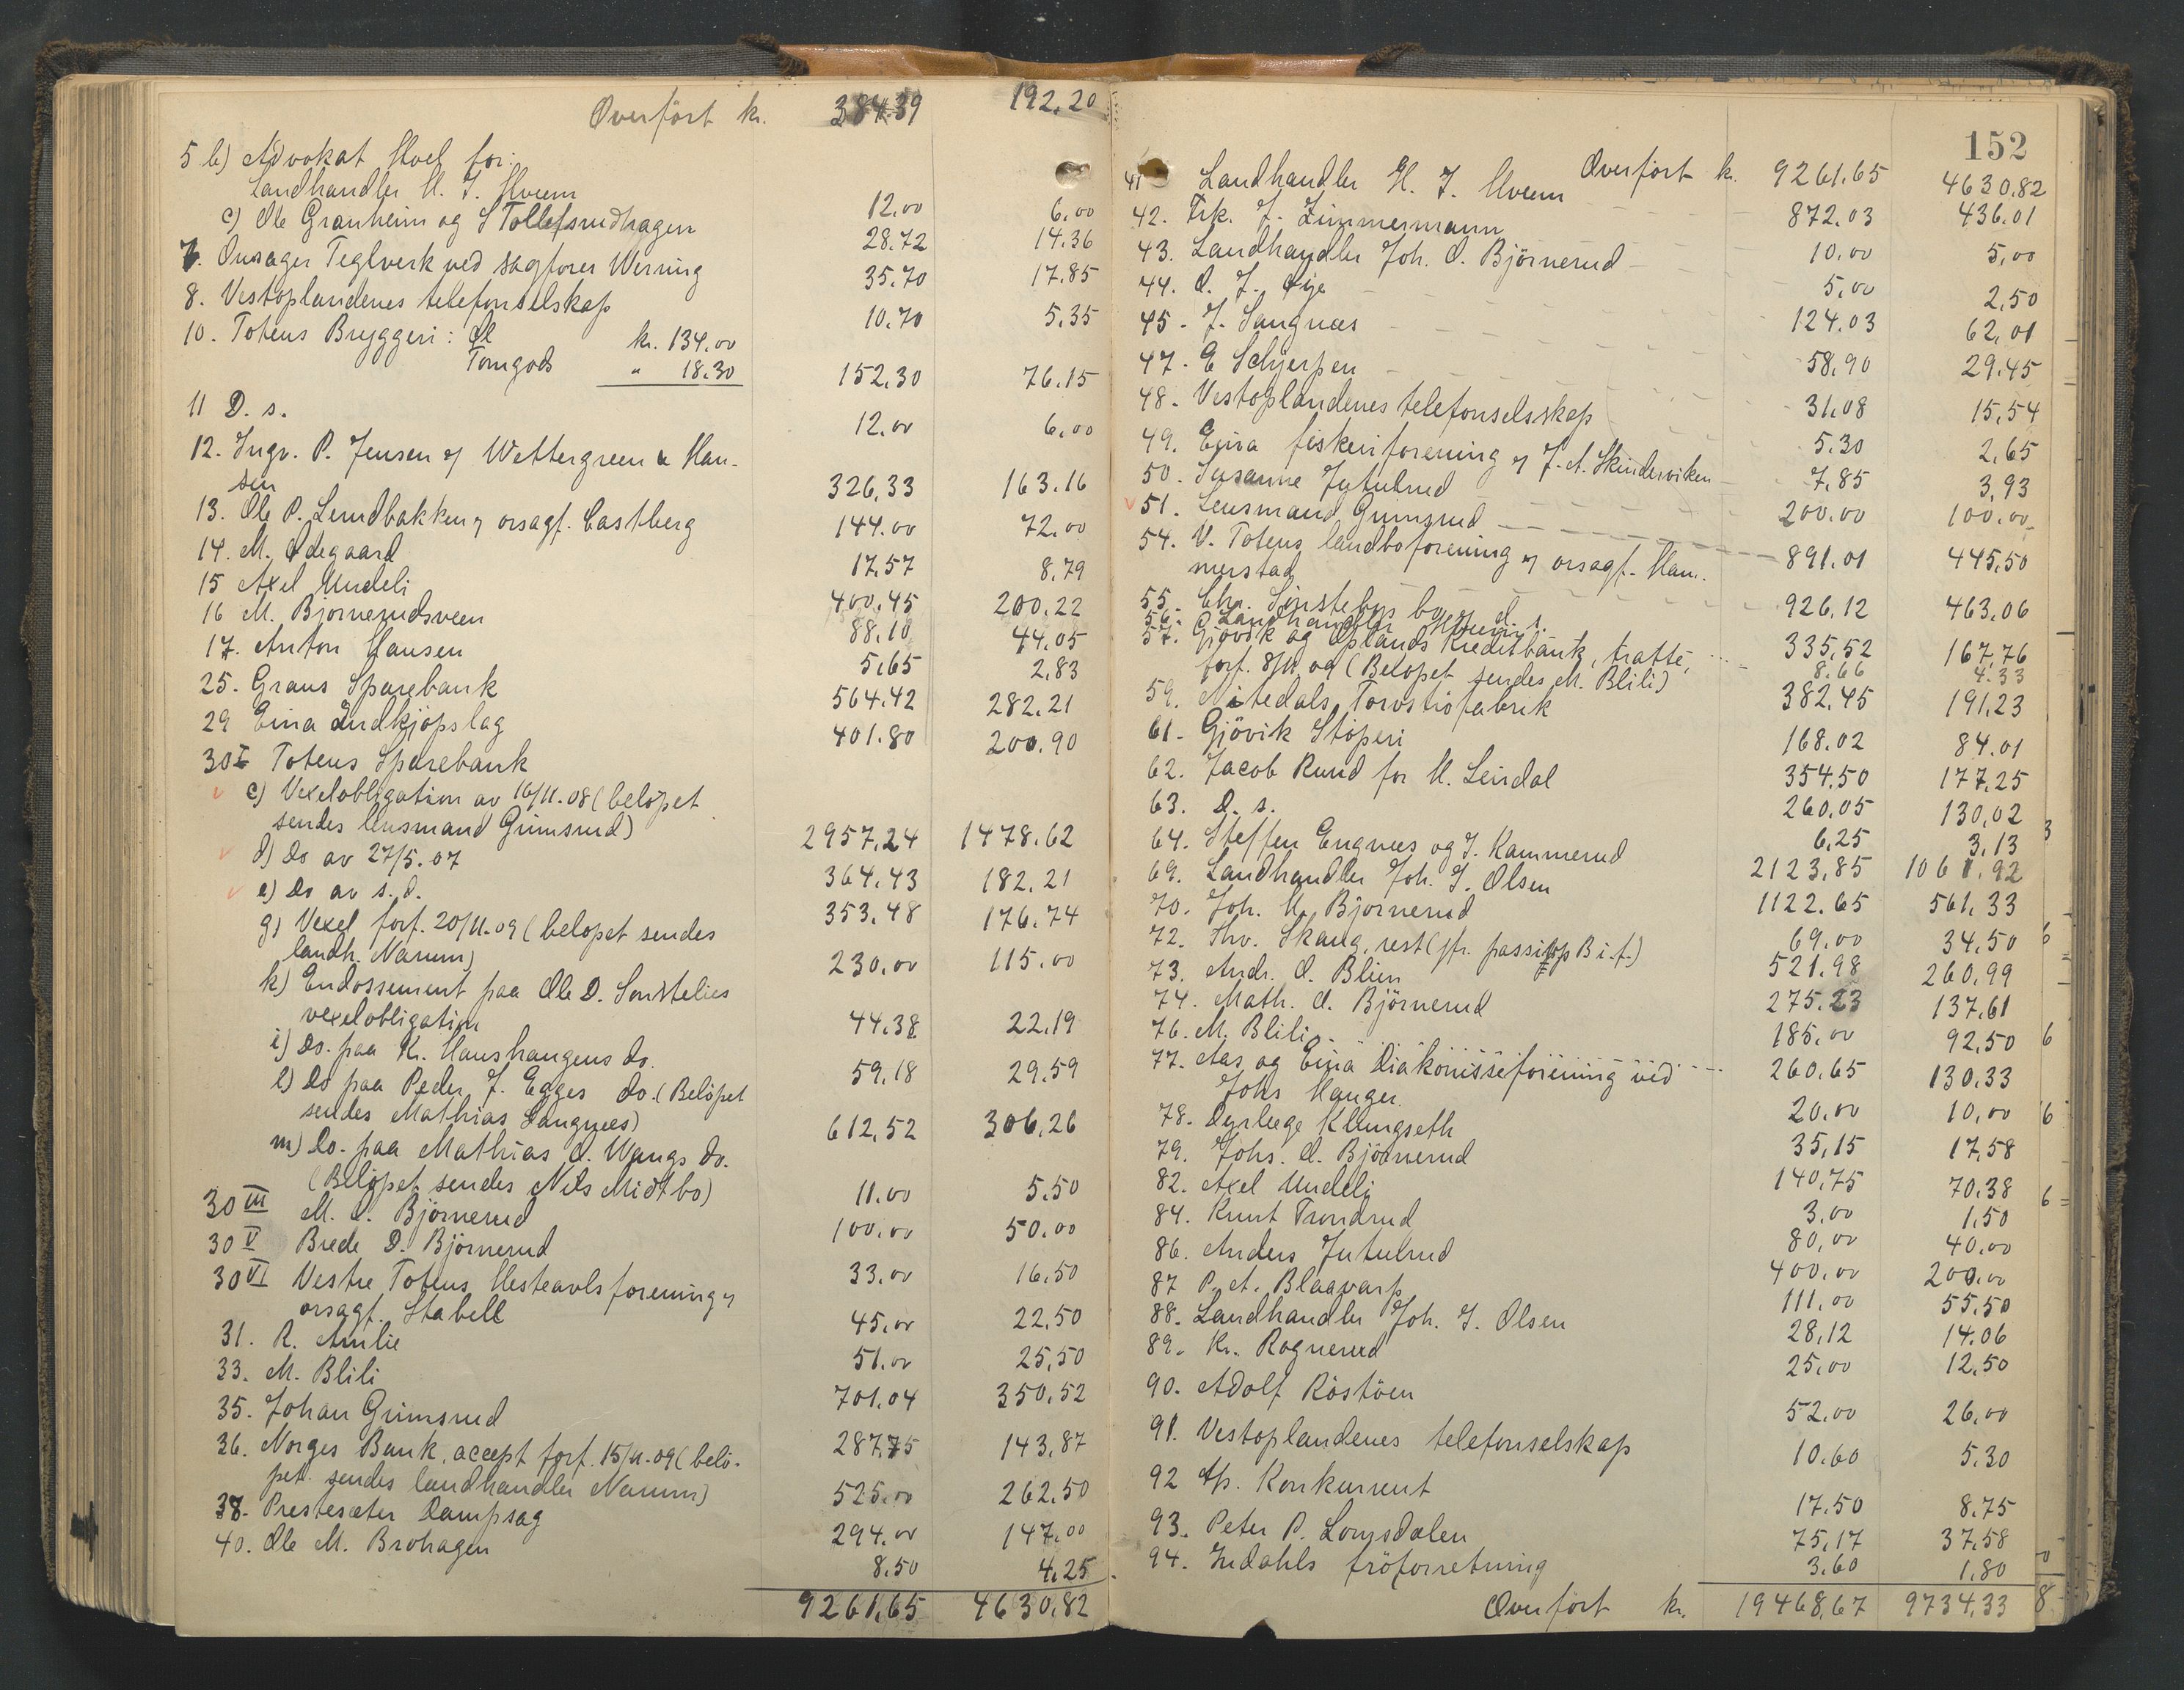 Overført kr. 384.39 192.20
5 b) Advokat Hoel for:
Landhandler H. J. Hveem 12.00 6.00
c) Ole Granheim og S Tollefsrudhagen 28.72 14.36
7. Onsager Teglverk ved sagfører Werring 35.70 17.85
8. Vestoplandenes telefonselskap 10.70 5.35
10. Totens Bryggeri: Øl kr. 134.00
Tomgods " 18.30 152.30 76.15
11 D. s. 12.00 6.00
12. Ingv. P. Jensen v/ Wettergreen & Han-
sen 326.33 163.16
13. Ole P. Lundbakken v/ orsagf. Castberg 144.00 72.00
14. M. Ødegaard 17.57 8.79
15 Axel Undeli 400.45 200.22
16 M. Bjørnerudsveen 88.10 44.05
17. Anton Hansen 5.65 2.83
25. Grans Sparebank 564.42 282.21
29 Eina Indkjøpslag 401.80 200.90
30 I Totens Sparebank
c) Vexelobligation av 16/11.08 (beløpet
sendes lensmand Grimsrud) 2957.24 1478.62
d) Do av 27/5.07 364.43 182.21
e) Do av s. d. 353.48 176.74
g) Vexel forf. 20/11.09 (beløpet sendes
landh. Narum) 230.00 115.00
k) Endossement paa Ole D. Sønstelies
vexelobligation 44.38 22.19
i) Do. paa Kr. Haushaugens do. 59.18 29.59
l) Do paa Peder J. Egges do. (Beløpet
sendes Mathias Langnæs) 612.52 306.26
m) Do. paa Mathias O. Wangs do.
(Beløpet sendes Nils Midtbø) 11.00 5.50
30 III M. O. Bjørnerud 100.00 50.00
30 V Brede D. Bjørnerud 33.00 16.50
30 VI Vestre Totens Hesteavlsforening v/
orsagf. Stabell 45.00 22.50
31. R. Amlie 51.00 25.50
33. M. Blili 701.04 350.52
35. Johan Grimsrud 287.75 143.87
36. Norges Bank, accept forf. 15/11.09 (belø-
pet sendes landhandler Narum) 525.00 262.50
38. Prestesæter Dampsag 294.00 147.00
40. Ole M. Brohagen 8.50 4.25
9261.65 4630.82
152
Overført kr. 9261.65 4630.82
41 Landhandler H. J. Hveem 872.03 436.01
42. Frk. J. Zimmermann 10.00 5.00
43. Landhandler Joh. O. Bjørnerud 5.00 2.50
44. O. J. Øije 124.03 62.01
45. J. Langnæs 58.90 29.45
47. E Schjerpen 31.08 15.54
48. Vestoplandenes telefonselskap 5.30 2.65
49. Eina fiskeriforening v/ J. A. Skinderviken 7.85 3.93
50. Susanne Jutulrud 200.00 100.00
51. Lensmand Grimsrud 891.01 445.50
54. V. Totens landboforening v/ orsagf. Ham-
merstad 926.12 463.06
55. Chr. Sønsteby bo v/ d. s. 335.52 167.76
56. Landhandler Hveem 8.66 4.33
57. Gjøvik og Oplands Kreditbank, tratte,
forf. 8/11.09 (Beløpet sendes M. Blili) 382.45 191.23
59. Nitedals Torvstrøfabrik 168.02 84.01
61. Gjøvik Støperi 354.50 177.25
62. Jacob Rund for H. Leirdal 260.05 130.02
63. D. s. 6.25 3.13
64. Steffen Engnæs og J. Kammerud 2123.85 1061.92
69. Landhandler Joh. J. Olsen 1122.65 561.33
70. Joh. M. Bjørnerud 69.00 34.50
72. Thv. Skaug, rest (jfr. passiv op B i. f.) 521.98 260.99
73. Andr. O. Blien 275.23 137.61
74. Math. O. Bjørnerud 185.00 92.50
76. M. Blili 260.65 130.33
77. Aas og Eina Diakonisseforening ved
Johs Hanger 20.00 10.00
78. Dyrlæge Klungseth 35.15 17.58
79. Johs. O. Bjørnerud 140.75 70.38
82. Axel Undeli 3.00 1.50
84. Knut Trondrud 80.00 40.00
86. Anders Jutulrud 400.00 200.00
87 P. A. Blaavarp 111.00 55.50
88. Landhandler Joh. J. Olsen 28.12 14.06
89. Kr. Rognerud 25.00 12.50
90. Adolf Røstøen 52.00 26.00
91. Vestoplandenes telefonselskap 10.60 5.30
92 A/s. Konkurrent 17.50 8.75
93. Peter P. Lomsdalen 75.17 37.58
94. Indahls frøforretning 3.60 1.80
Overført kr. 19468.67 9734.33